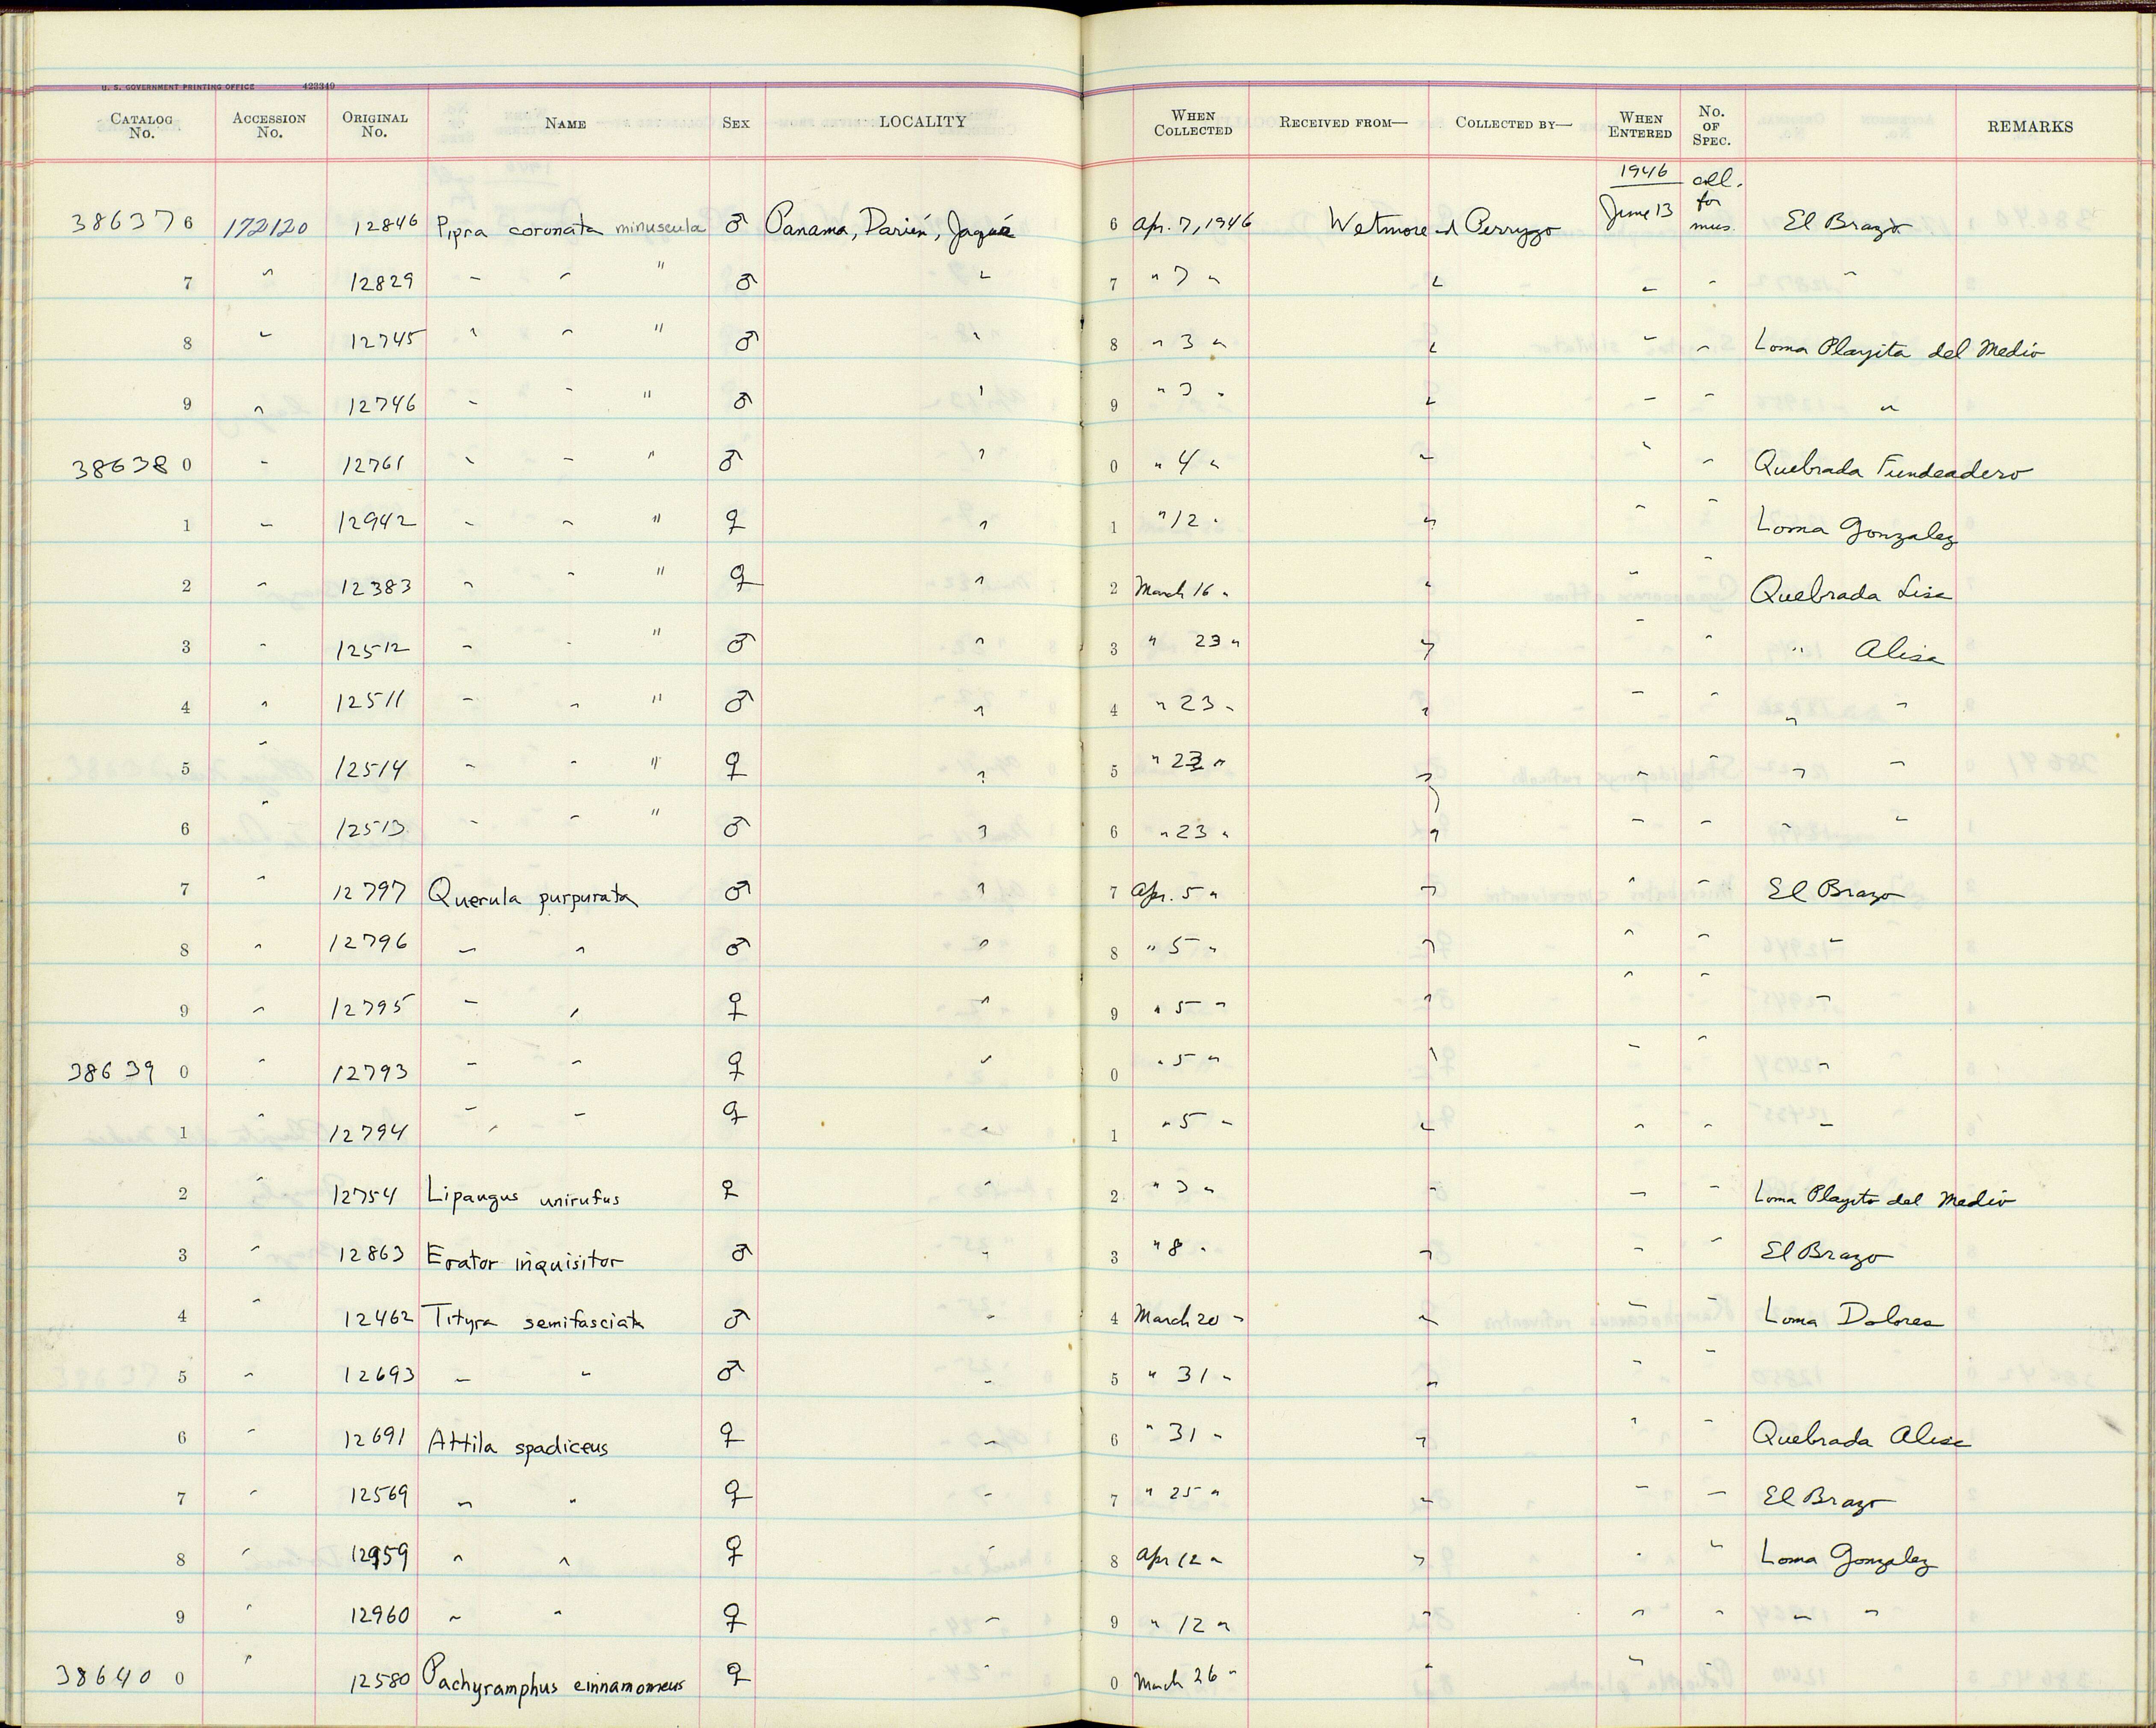 U. S. GOVERNMENT PRINTING OFFICE 423349
CATALOG No. ACCESSION No. ORIGINAL No. NAME SEX LOCALITY WHEN COLLECTED RECEIVED FROM— COLLECTED BY— WHEN ENTERED No. OF SPEC. REMARKS
386376 172120 12846 Pipra coronata minuscula ♂ Panama, Darién, Jaqué 6 Apr. 7, 1946 Wetmore and Perrygo 1946 June 13 coll. for mus. El Brazo
7 " 12829 " " " ♂ " 7 " 7 " " " " "
8 " 12745 " " " ♂ " 8 " 3 " " " " Loma Playita del Medio
9 " 12746 " " " ♂ " 9 " 3 " " " " "
386380 " 12761 " " " ♂ " 0 " 4 " " " " Quebrada Fundeadero
1 " 12942 " " " ♀ " 1 " 12 " " " " Loma Gonzalez
2 " 12383 " " " ♀ " 2 March 16 " " " " Quebrada Lisa
3 " 12512 " " " ♂ " 3 " 23 " " " " " Alisa
4 " 12511 " " " ♂ " 4 " 23 " " " " " "
5 " 12514 " " " ♀ " 5 " 23 " " " " " "
6 " 12513 " " " ♂ " 6 " 23 " " " " " "
7 " 12797 Querula purpurata ♂ " 7 Apr. 5 " " " " El Brazo
8 " 12796 " " ♂ " 8 " 5 " " " " "
9 " 12795 " " ♀ " 9 " 5 " " " " "
386390 " 12793 " " ♀ " 0 " 5 " " " " "
1 " 12794 " " ♀ " 1 " 5 " " " " "
2 " 12754 Lipaugus unirufus ♀ " 2 " 3 " " " " Loma Playita del Medio
3 " 12863 Erator inquisitor ♂ " 3 " 8 " " " " El Brazo
4 " 12462 Tityra semifasciata ♂ " 4 March 20 " " " " Loma Dolores
5 " 12693 " " ♂ " 5 " 31 " " " "
6 " 12691 Attila spadiceus ♀ " 6 " 31 " " " " Quebrada Alisa
7 " 12569 " " ♀ " 7 " 25 " " " " El Brazo
8 " 12959 " " ♀ " 8 Apr 12 " " " " Loma Gonzalez
9 " 12960 " " ♀ " 9 " 12 " " " " " "
386400 " 12580 Pachyramphus cinnamomeus ♀ " 0 March 26 " " " "